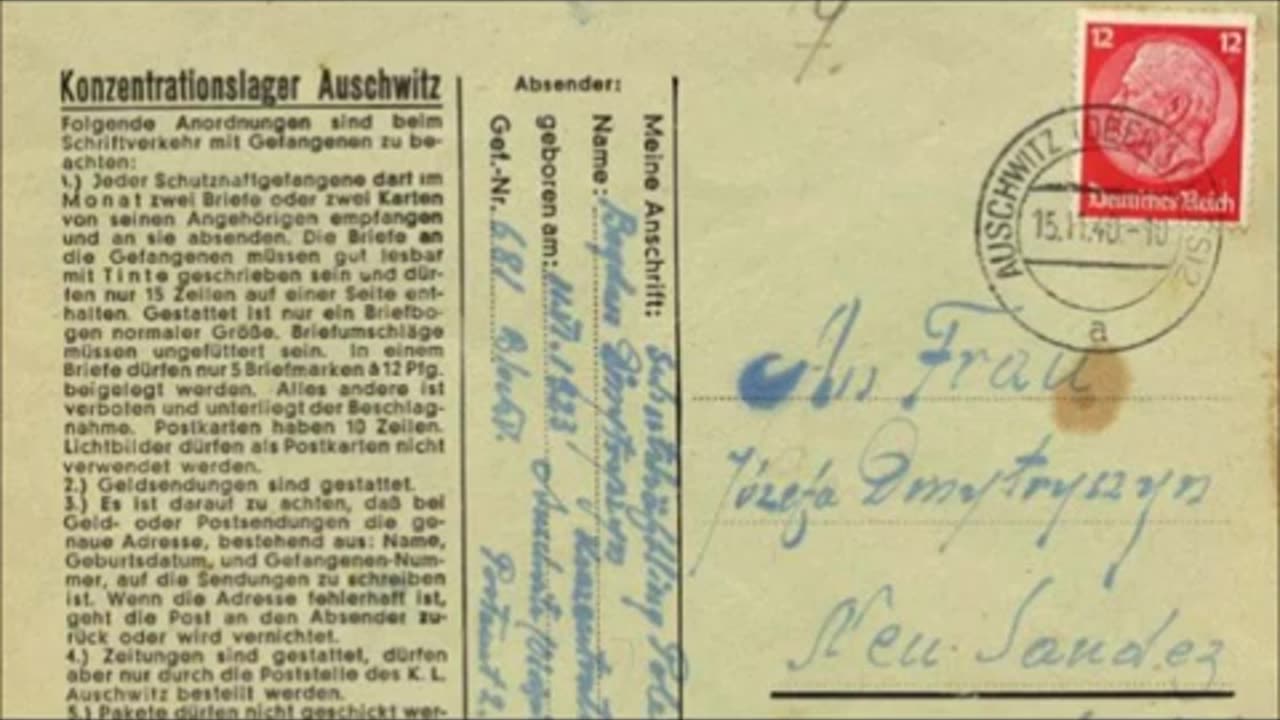 Konzentrationslager Auschwitz
Folgende Anordnungen sind beim
Schriftverkehr mit Gefangenen zu be-
achten:
1.) Jeder Schutzhaftgefangene darf im
Monat zwei Briefe oder zwei Karten
von seinen Angehörigen empfangen
und an sie absenden. Die Briefe an
die Gefangenen müssen gut lesbar
mit Tinte geschrieben sein und dür-
fen nur 15 Zeilen auf einer Seite ent-
halten. Gestattet ist nur ein Briefbo-
gen normaler Größe. Briefumschläge
müssen ungefüttert sein. In einem
Briefe dürfen nur 5 Briefmarken à 12 Pfg.
beigelegt werden. Alles andere ist
verboten und unterliegt der Beschlag-
nahme. Postkarten haben 10 Zeilen.
Lichtbilder dürfen als Postkarten nicht
verwendet werden.
2.) Geldsendungen sind gestattet.
3.) Es ist darauf zu achten, daß bei
Geld- oder Postsendungen die ge-
naue Adresse, bestehend aus: Name,
Geburtsdatum, und Gefangenen-Num-
mer, auf die Sendungen zu schreiben
ist. Wenn die Adresse fehlerhaft ist,
geht die Post an den Absender zu-
rück oder wird vernichtet.
4.) Zeitungen sind gestattet, dürfen
aber nur durch die Poststelle des K. L.
Auschwitz bestellt werden.
5.) Pakete dürfen nicht geschickt wer-
Absender:
Meine Anschrift: Schutzhäftling Pole
Name: Bogdan
geboren am:
Gef.-Nr. 681
Postamt 2.
12 12
Deutsches Reich
AUSCHWITZ (OBERSCHLES) 2
15.11.40.-10
a
An Frau
Józefa Dmytryszyn
Neu Sandez